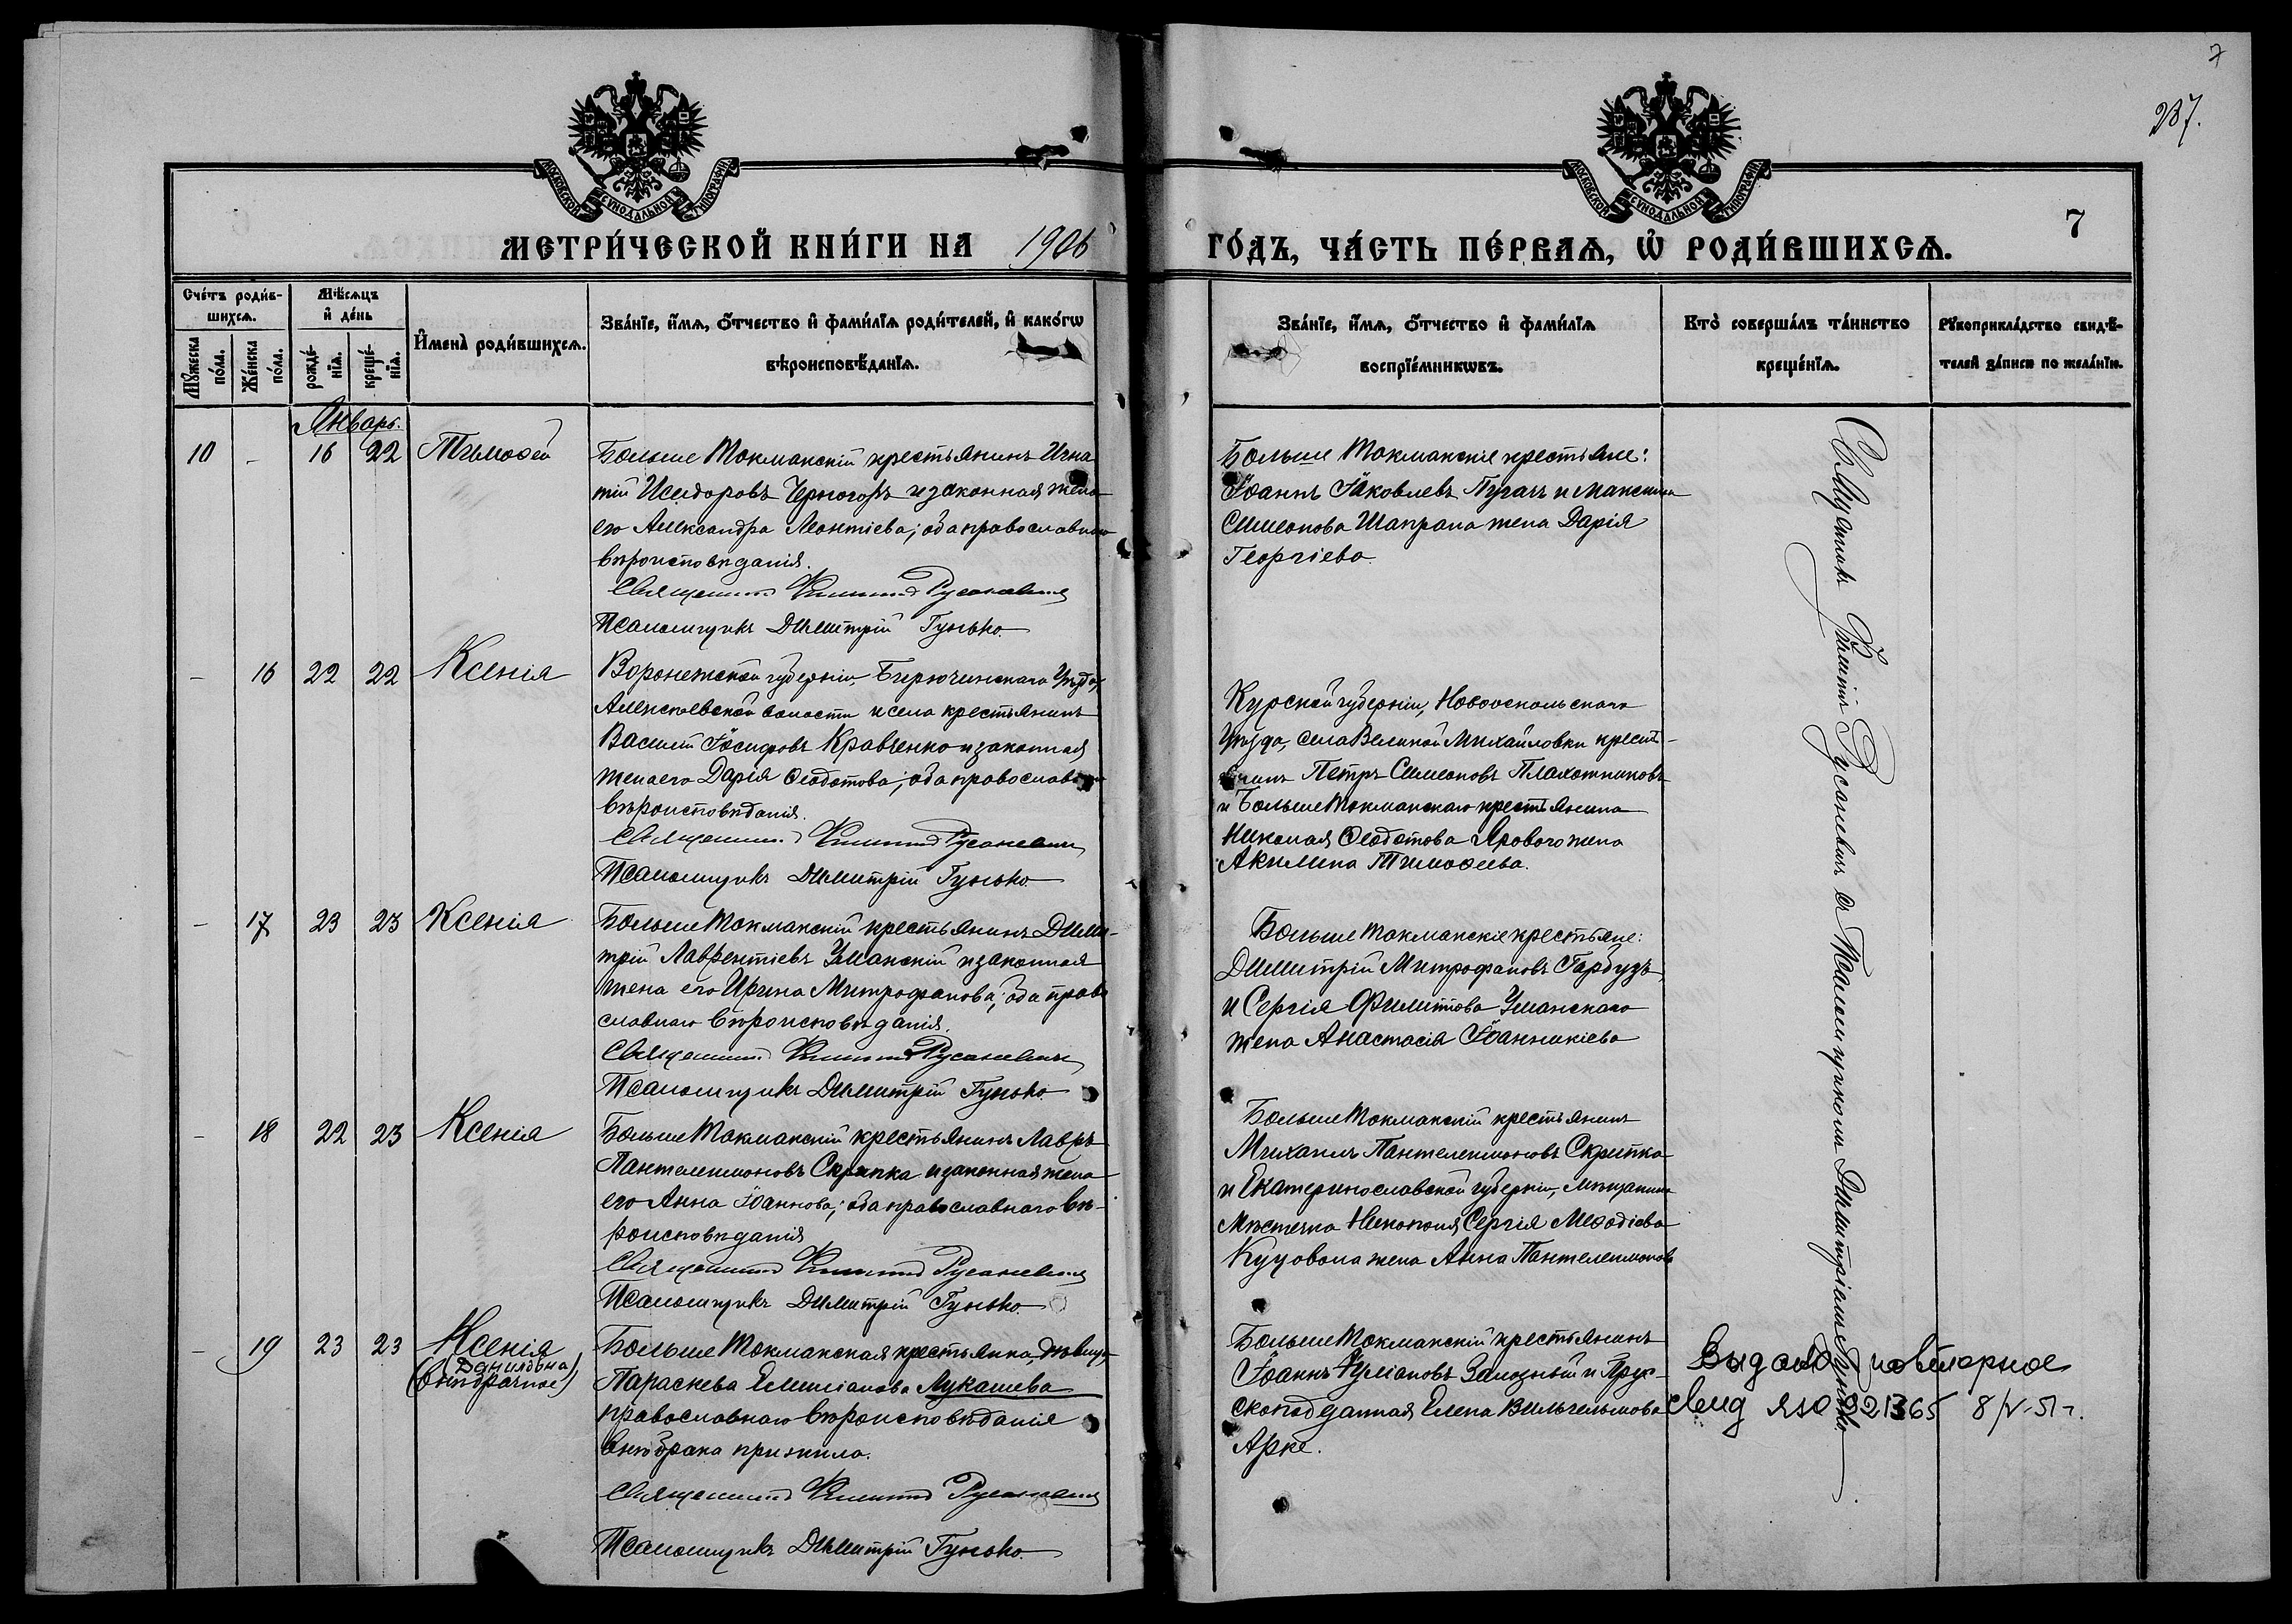 7
287.
МОСКОВСКОЙ СѴНОДАЛЬНОЙ ТИПОГРАФІИ
МОСКОВСКОЙ СѴНОДАЛЬНОЙ ТИПОГРАФІИ
7
МЕТРИ́ЧЕСКОЙ КНИ́ГИ НА 1906 ГО́ДЪ, ЧА́СТЬ ПЕ́РВАѦ, Ѡ҆ РОДИ́ВШИХСѦ.
Сче́тъ роди́в-
шихсѧ.
Мѣ́сѧцъ
и҆ де́нь
Мꙋ́жеска
по́ла.
Же́нска
по́ла.
рожде́-
нїѧ.
креще́-
нїѧ.
И҆мена̀ роди́вшихсѧ.
Зва́нїе, и҆́мѧ, ѻ҆́тчество и҆ фамѝлїѧ роди́телей, и҆ како́гѡ
вѣроисповѣ́данїѧ.
Зва́нїе, и҆́мѧ, ѻ҆́тчество и҆ фамѝлїѧ
воспрїе́мникѡвъ.
Кто̀ соверша́лъ та́инство
креще́нїѧ.
Рꙋкоприкла́дство свидѣ́-
телей за́писи по жела́нїю.
Январь.
10 - 16 22 Тимоѳей
Больше Токмакскій крестьянинъ Игна
тій Исидоровъ Черногоръ и законная жена
его Александра Леонтіева; оба православнаго
вѣроисповѣданія.
Священникъ Филиппъ Русаневичъ
Псаломщикъ Димитрій Гунько.
Больше Токмакскіе крестьяне:
Іоаннъ Іаковлевъ Пугачъ и Максима
Симеонова Шапрана жена Дарія
Георгіева.
- 16 22 22 Ксенія
Воронежской губерніи, Бирюченскаго Уѣзда,
Алексѣевской волости и села крестьянинъ
Василій Іосифовъ Кравченко и законная
жена его Дарія Ѳеодотова; оба православнаго
вѣроисповѣданія.
Священникъ Филиппъ Русаневичъ
Псаломщикъ Димитрій Гунько.
Курской губерніи, Новооскольскаго
Уѣзда, села Великой Михайловки крестья-
нинъ Петръ Симеоновъ Плахотниковъ
и Больше Токмакскаго крестьянина
Николая Ѳеодотова Ярового жена
Акилина Тимоѳеева.
- 17 23 23 Ксенія
Больше Токмакскій крестьянинъ Дими-
трій Лаврентіевъ Уманскій и законная
жена его Ирина Митрофанова; оба право
славнаго вѣроисповѣданія.
Священникъ Филиппъ Русаневичъ
Псаломщикъ Димитрій Гунько.
Больше Токмакскіе крестьяне:
Димитрій Митрофановъ Гарбузъ
и Сергія Филиппова Уманскаго
жена Анастасія Іоанникіева
- 18 22 23 Ксенія
Больше Токмакскій крестьянинъ Лавръ
Пантелеимоновъ Скрипка и законная жена
его Анна Іоаннова; оба православнаго вѣ-
роисповѣданія
Священникъ Филиппъ Русаневичъ
Псаломщикъ Димитрій Гунько.
Больше Токмакскій крестьянинъ
Михаилъ Пантелеимоновъ Скрипка
и Екатеринославской губерніи, мѣщанина
Мѣстечка Никополя, Сергія Меѳодіева
жена Анна Пантелеимонова
- 19 23 23 Ксенія
(Даниловна)
(внѣбрачное)
Больше Токмакская крестьянка, дѣвица,
Параскева Емиліанова Лукашева
православнаго вѣроисповѣданія
внѣ брака прижила.
Священникъ Филиппъ Русаневичъ
Псаломщикъ Димитрій Гунько.
Больше Токмакскій крестьянинъ
Іоаннъ Іуліановъ Залозный и Прус-
скоподданная Елена Вильгельмова
Арке.
Священникъ Филиппъ Русаневичъ съ Псаломщикомъ Димитріемъ Гунько.
Выдано повторное
свид ЯЮ 921365 8/V-51 г.